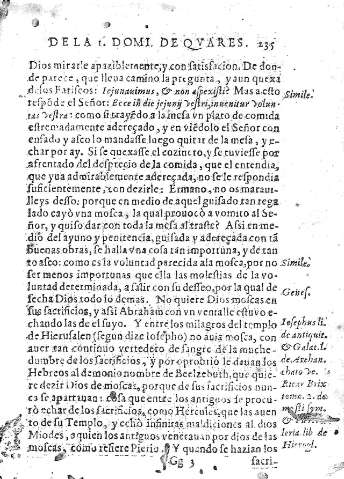 DE LA 1. DOMI. DE QVARES. 235
Dios mirarle apaziblemente, y con satisfacion. De don-
de parece, que lleua camino la pregunta, y aun quexa
de los Fariseos: Ieiunauimus, & non aspexisti? Mas a esto
respõde el Señor: Ecce in die ieiunij vestri, inuenitur volun-
tas vestra: como si trayẽdo a la mesa vn plato de comida
estremadamente adereçado, y en viẽdolo el Señor con
enfado y asco lo mandasse luego quitar de la mesa, y e-
char por ay. Si se quexasse el cozinero, y se tuuiesse por
afrentado del desprecio de la comida, que el entendia,
que yua admirablemente adereçada, no se le respondia
suficientemente, con dezirle: Ermano, no os maraui-
lleys desso: porque en medio de aquel guisado tan rega
lado cayò vna mosca, la qual prouocò a vomito al Se-
ñor, y quiso dar con toda la mesa al traste? Assi en me-
dio del ayuno y penitencia, guisada y adereçada con tã
buenas obras, se halla vna cosa tan importuna, y de tan-
to asco: como es la voluntad parecida a la mosca, por no
ser menos importunas que ella las molestias de la vo-
luntad determinada, a salir con su desseo, por la qual de
secha Dios todo lo demas. No quiere Dios moscas en
sus sacrificios, y assi Abraham con vn ventalle estuuo e-
chando las de el suyo. Y entre los milagros del templo
de Hierusalen (segun dize Iosepho) no auia mosca, con
auer tan continuo vertedero de sangre de la muche-
dumbre de los sacrificios, y por oprobrio le dauan los
Hebreos al demonio nombre de Beelzebuth, que quie-
re dezir Dios de moscas, porque de sus sacrificios nun-
ca se apartauan: cosa que entre los antiguos se procu-
rò echar de los sacrificios, como Hercules, que las auen
to de su Templo, y echò infinitas maldiciones al dios
Miodes, a quien los antiguos venerauan por dios de las
moscas, como refiere Pierio. Y quando se hazian los
Gg 3 sacri-
Simile.
Simile.
Genes.
Iosephus li.
de antiquit.
& Galat. l.